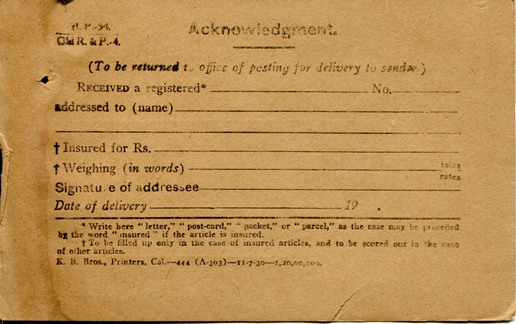 R. P.-54.
Old R. & P.-4.
Acknowledgment.
(To be returned to office of posting for delivery to sender.)
RECEIVED a registered* No.
addressed to (name)
† Insured for Rs.
† Weighing (in words) tolas
ratis
Signature of addressee
Date of delivery 19 .
* Write here "letter," "post-card," "packet," or "parcel," as the case may be preceded
by the word "insured" if the article is insured.
† To be filled up only in the case of insured articles, and to be scored out in the case
of other articles.
K. B. Bros., Printers, Cal.—444 (A-303)—11-7-30—1,20,00,000.